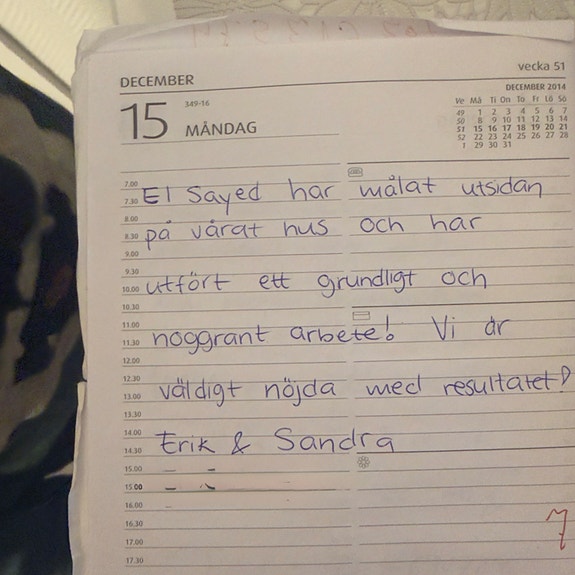 DECEMBER
vecka 51
15
349-16
MÅNDAG
DECEMBER 2014
Ve Må Ti On To Fr Lö Sö
49 1 2 3 4 5 6 7
50 8 9 10 11 12 13 14
51 15 16 17 18 19 20 21
52 22 23 24 25 26 27 28
1 29 30 31
7.00
7.30 El Sayed har målat utsidan
8.00
8.30 på vårat hus och har
9.00
9.30
10.00 utfört ett grundligt och
10.30
11.00
11.30 noggrant arbete! Vi är
12.00
12.30
13.00 väldigt nöjda med resultatet!
13.30
14.00
14.30 Erik & Sandra
15.00
15.00
16.00
16.30
17.00
17.30